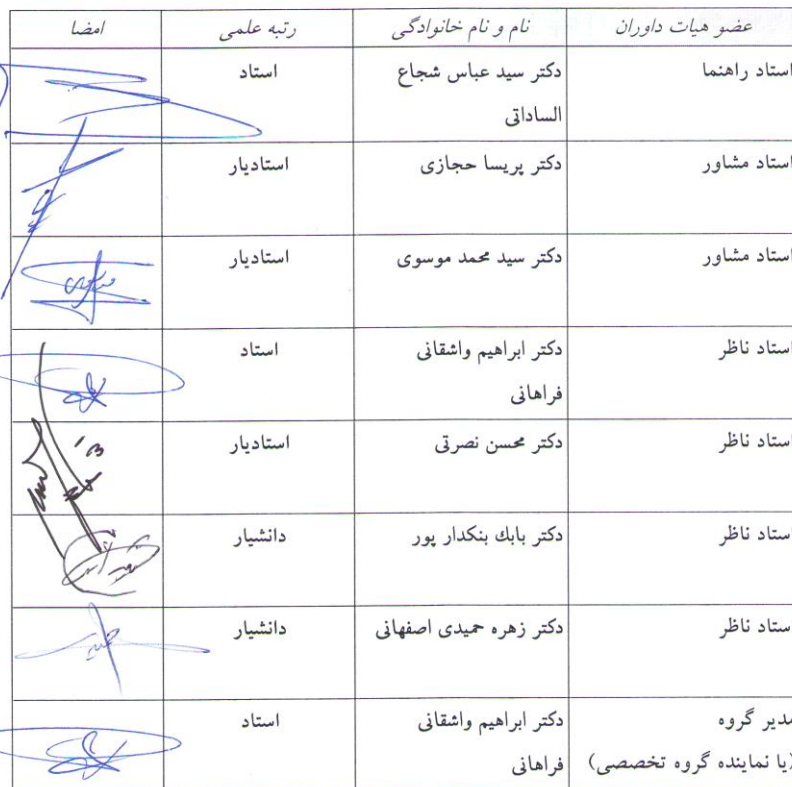 عضو هیات داوران نام و نام خانوادگی رتبه علمی امضا
استاد راهنما دکتر سید عباس شجاع استاد
الساداتی
استاد مشاور دکتر پریسا حجازی استادیار
استاد مشاور دکتر سید محمد موسوی استادیار
استاد ناظر دکتر ابراهیم واشقانی استاد
فراهانی
استاد ناظر دکتر محسن نصرتی استادیار
استاد ناظر دکتر بابك بنکدار پور دانشیار
استاد ناظر دکتر زهره حمیدی اصفهانی دانشیار
مدیر گروه دکتر ابراهیم واشقانی استاد
(یا نماینده گروه تخصصی) فراهانی